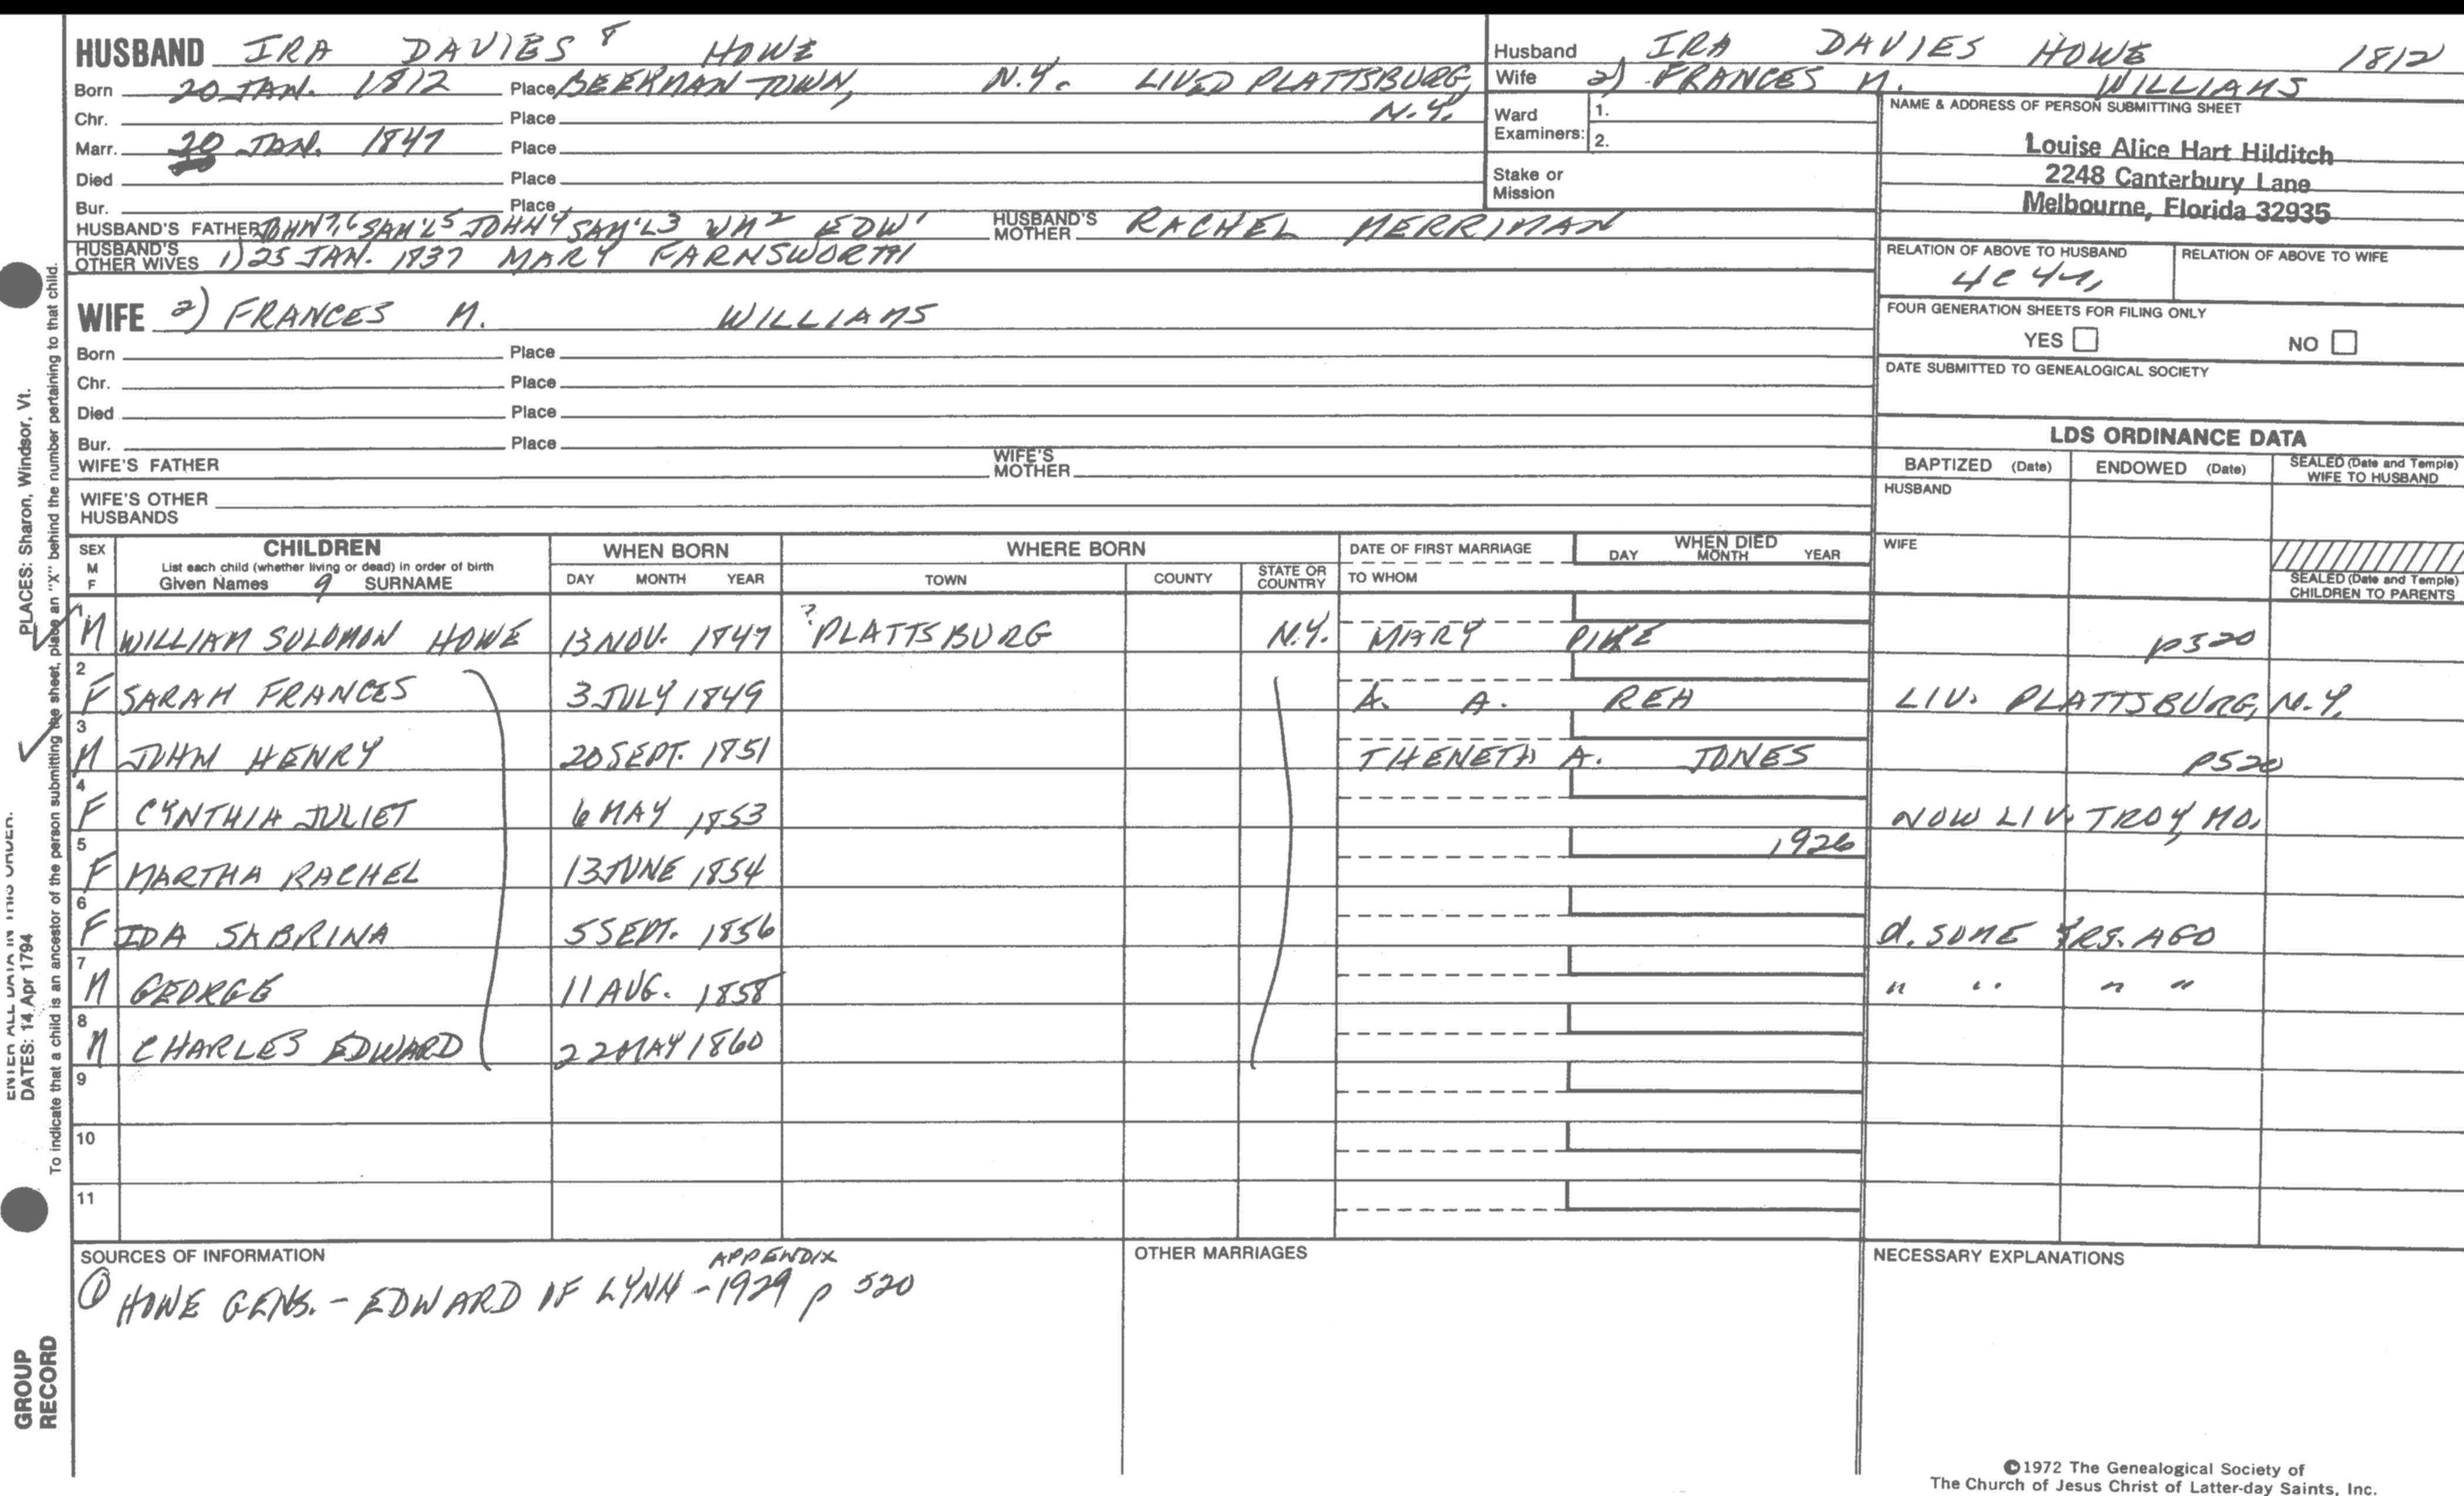 HUSBAND IRA DAVIES 8 HOWE
Born 20 JAN. 1812 Place BEEKMAN TOWN, N.Y. LIVED PLATTSBURG, N.Y.
Chr. Place
Marr. 20 JAN. 1847 Place
Died Place
Bur. Place
HUSBAND'S FATHER JOHN 7,6 SAM'L 5 JOHN 4 SAM'L 3 WM 2 EDW 1 HUSBAND'S MOTHER RACHEL MERRIMAN
HUSBAND'S OTHER WIVES 1) 25 JAN. 1837 MARY FARNSWORTH
WIFE 2) FRANCES M. WILLIAMS
Born Place
Chr. Place
Died Place
Bur. Place
WIFE'S FATHER WIFE'S MOTHER
WIFE'S OTHER HUSBANDS
Husband IRA DAVIES HOWE 1812
Wife 2) FRANCES M. WILLIAMS
Ward Examiners: 1.
2.
Stake or Mission
NAME & ADDRESS OF PERSON SUBMITTING SHEET
Louise Alice Hart Hilditch
2248 Canterbury Lane
Melbourne, Florida 32935
RELATION OF ABOVE TO HUSBAND RELATION OF ABOVE TO WIFE
4C 4r,
FOUR GENERATION SHEETS FOR FILING ONLY
YES NO
DATE SUBMITTED TO GENEALOGICAL SOCIETY
LDS ORDINANCE DATA
BAPTIZED (Date) ENDOWED (Date) SEALED (Date and Temple) WIFE TO HUSBAND
HUSBAND
WIFE
SEALED (Date and Temple) CHILDREN TO PARENTS
SEX M F CHILDREN WHEN BORN WHERE BORN DATE OF FIRST MARRIAGE WHEN DIED
List each child (whether living or dead) in order of birth
Given Names 9 SURNAME DAY MONTH YEAR TOWN COUNTY STATE OR COUNTRY TO WHOM DAY MONTH YEAR
1 M WILLIAM SOLOMON HOWE 13 NOV. 1847 ? PLATTSBURG N.Y. MARY PIKE p520
2 F SARAH FRANCES 3 JULY 1849 A. A. REA LIV. PLATTSBURG, N.Y.
3 M JOHN HENRY 20 SEPT. 1851 THENETH A. JONES p520
4 F CYNTHIA JULIET 6 MAY 1853 NOW LIV. TROY, MO.
5 F MARTHA RACHEL 13 JUNE 1854 1926
6 F IDA SABRINA 5 SEPT. 1856 d. SOME YRS. AGO
7 M GEORGE 11 AUG. 1858 " " " "
8 M CHARLES EDWARD 22 MAY 1860
9
10
11
SOURCES OF INFORMATION OTHER MARRIAGES NECESSARY EXPLANATIONS
APPENDIX
① HOWE GENS. - EDWARD OF LYNN - 1929 p 520
©1972 The Genealogical Society of
The Church of Jesus Christ of Latter-day Saints, Inc.
PLACES: Sharon, Windsor, Vt.
ENTER ALL DATA IN THIS ORDER:
DATES: 14 Apr 1794
To indicate that a child is an ancestor of the person submitting the sheet, place an "X" behind the number pertaining to that child.
GROUP
RECORD